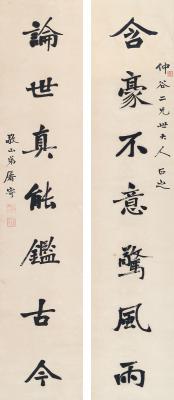 含豪不意驚風雨
仲谷二兄世大人正之
論世真能鑑古今
敬山弟屠寄